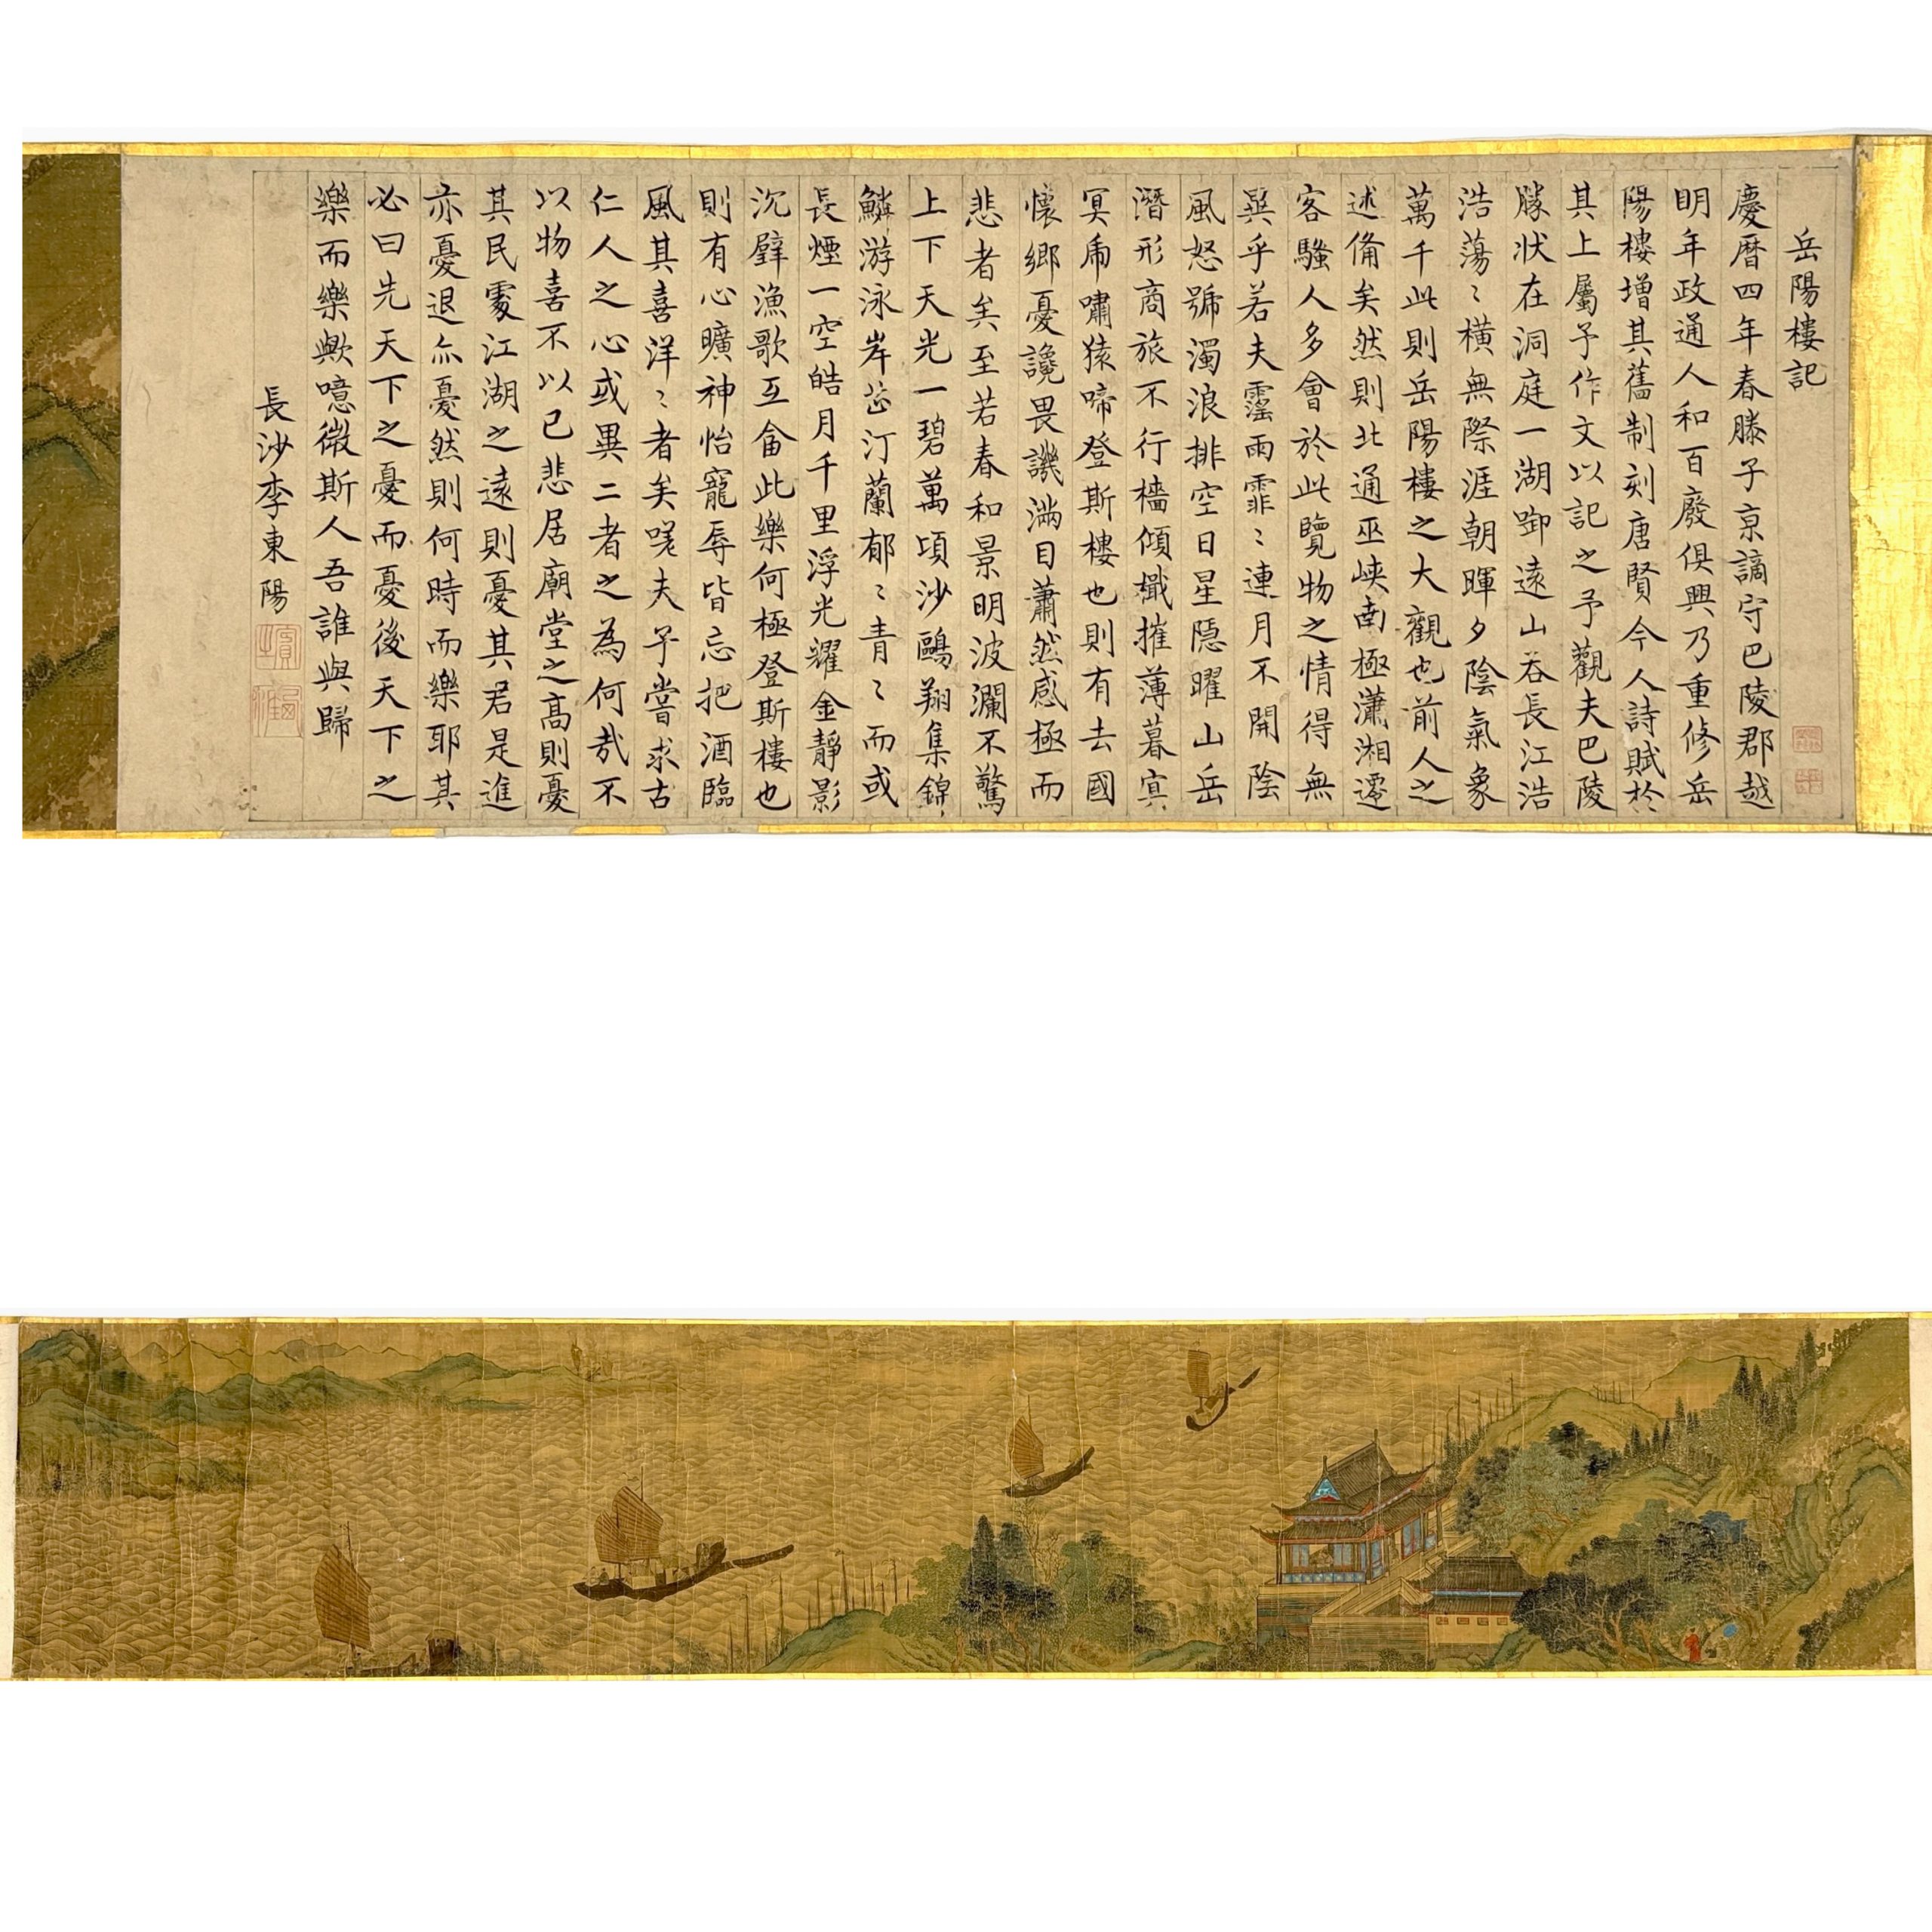 岳陽樓記
慶曆四年春滕子京謫守巴陵郡越
明年政通人和百廢俱興乃重修岳
陽樓增其舊制刻唐賢今人詩賦於
其上屬予作文以記之予觀夫巴陵
勝状在洞庭一湖啣遠山吞長江浩
浩蕩〻橫無際涯朝暉夕陰氣象
萬千此則岳陽樓之大觀也前人之
述俻矣然則北通巫峽南極瀟湘遷
客騷人多會於此覽物之情得無
異乎若夫霪雨霏〻連月不開陰
風怒號濁浪排空日星隱曜山岳
潛形商旅不行檣傾檝摧薄暮㝠
冥虎嘯猿啼登斯樓也則有去國
懷鄉憂讒畏譏滿目蕭然感極而
悲者矣至若春和景明波瀾不驚
上下天光一碧萬頃沙鷗翔集錦
鱗游泳岸芷汀蘭郁〻青〻而或
長煙一空皓月千里浮光耀金靜影
沉璧漁歌互畣此樂何極登斯樓也
則有心曠神怡寵辱皆忘把酒臨
風其喜洋〻者矣嗟夫予嘗求古
仁人之心或異二者之為何哉不
以物喜不以己悲居廟堂之高則憂
其民處江湖之遠則憂其君是進
亦憂退亦憂然則何時而樂耶其
必曰先天下之憂而憂後天下之
樂而樂歟噫微斯人吾誰與歸
長沙李東陽